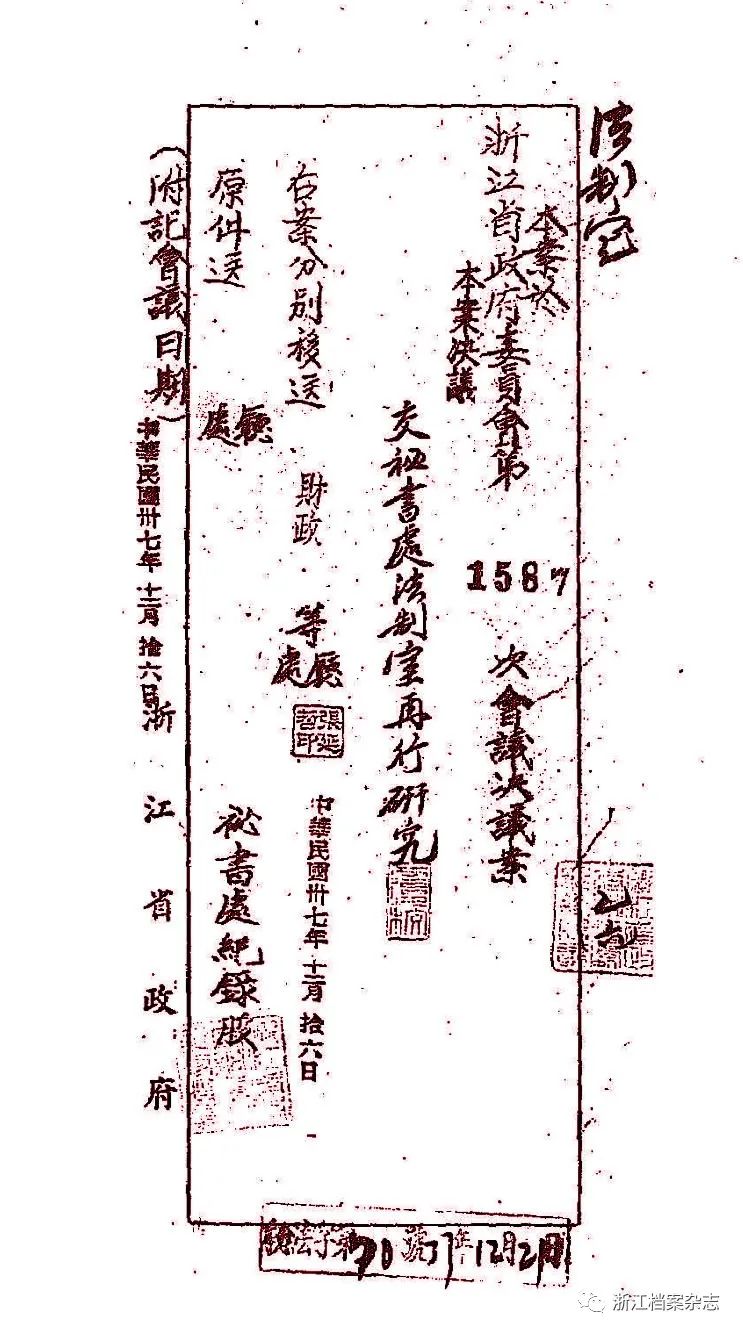 法制室
本案於
浙江省政府委員會第1587次會議決議案
本案決議
交祕書處法制室再行研究
右案分別移送財政等廳處
中華民國卅七年十二月拾六日
原件送廳處
祕書處紀錄股
(附記會議日期)中華民國卅七年十二月拾六日
浙江省政府
號37年12月21日
浙江档案杂志